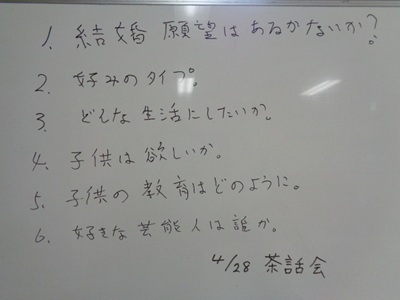 1. 結婚願望はあるかないか?
2. 好みのタイプ。
3. どんな生活にしたいか。
4. 子供は欲しいか。
5. 子供の教育はどのように。
6. 好きな芸能人は誰か。
4/28 茶話会